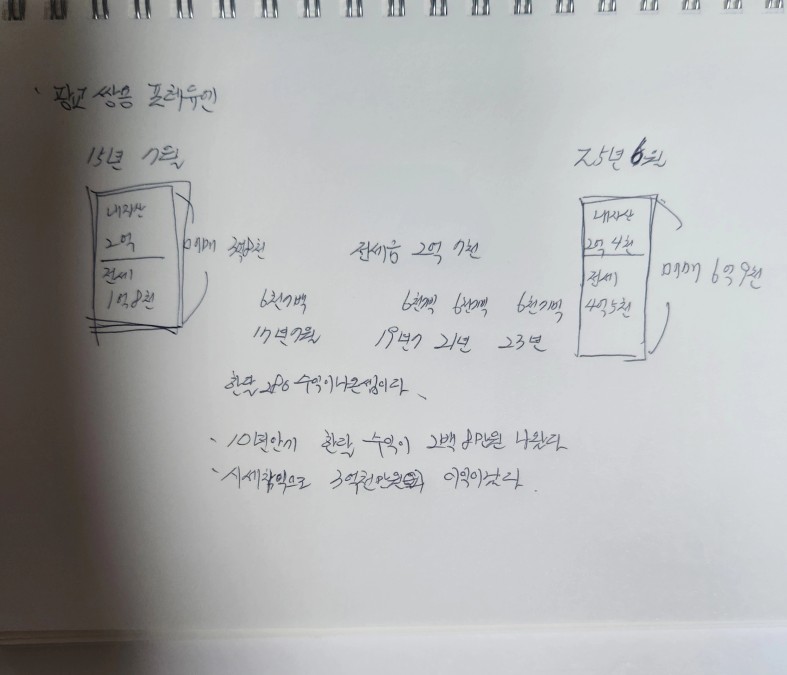 · 광교 쌍용 플래듀엔
15년 7월
25년 6월
내자산
2억
전세
1억8천
매매 3억8천
전세금 2억 7천
내자산
2억 4천
전세
4억5천
매매 6억9천
6천7백 6천7백 6천7백 6천7백
17년7월 19년7 21년 23년
한달 280 수익이나온셈이다.
· 10년안가 한달 수익이 2백 8만원 나왔다
· 시세차익으로 3억천만원 이익이났다.